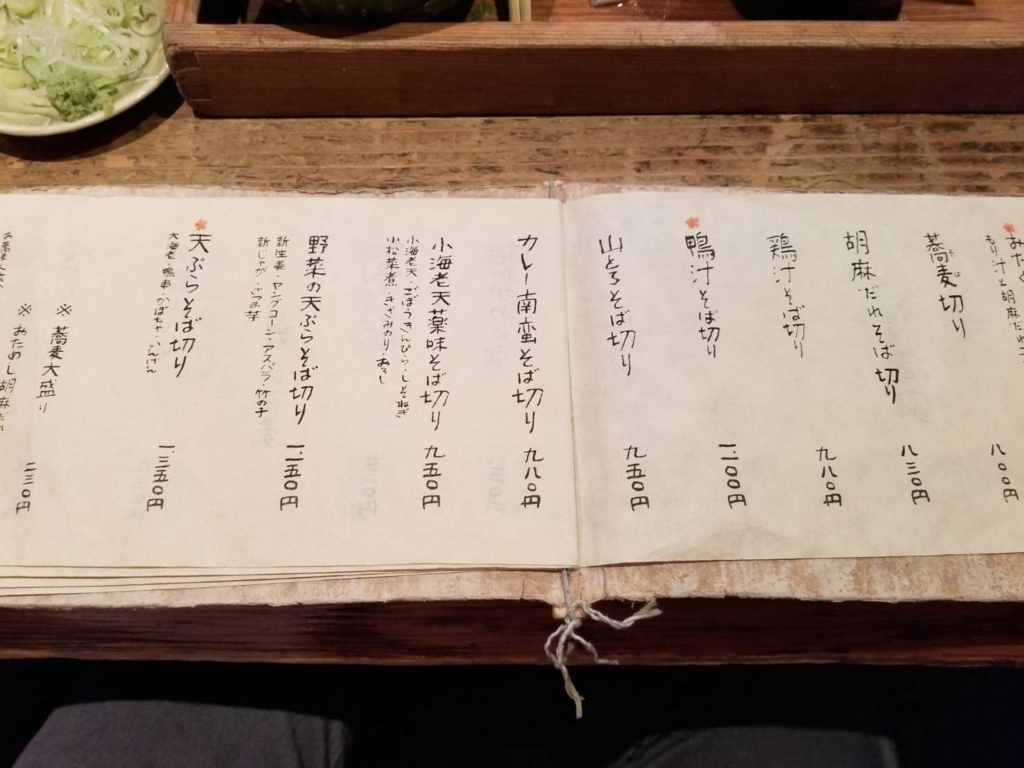 もり汁と胡麻だれ
八〇〇円
蕎麦切り
そば
八三〇円
胡麻だれそば切り
九八〇円
鶏汁そば切り
鴨汁そば切り
一、一〇〇円
山とろそば切り
九五〇円
カレー南蛮そば切り
九八〇円
小海老天薬味そば切り
九五〇円
小海老天・ごぼうきんぴら・しそねぎ
小松菜煮・きざみのり・おろし
野菜の天ぷらそば切り
一、一五〇円
新生姜・ヤングコーン・アスパラ・竹の子
天ぷらそば切り
一、三五〇円
大海老・鴨串・かぼちゃ・いんげん
※ 蕎麦大盛り
※ おためし胡麻だれ
二三〇円